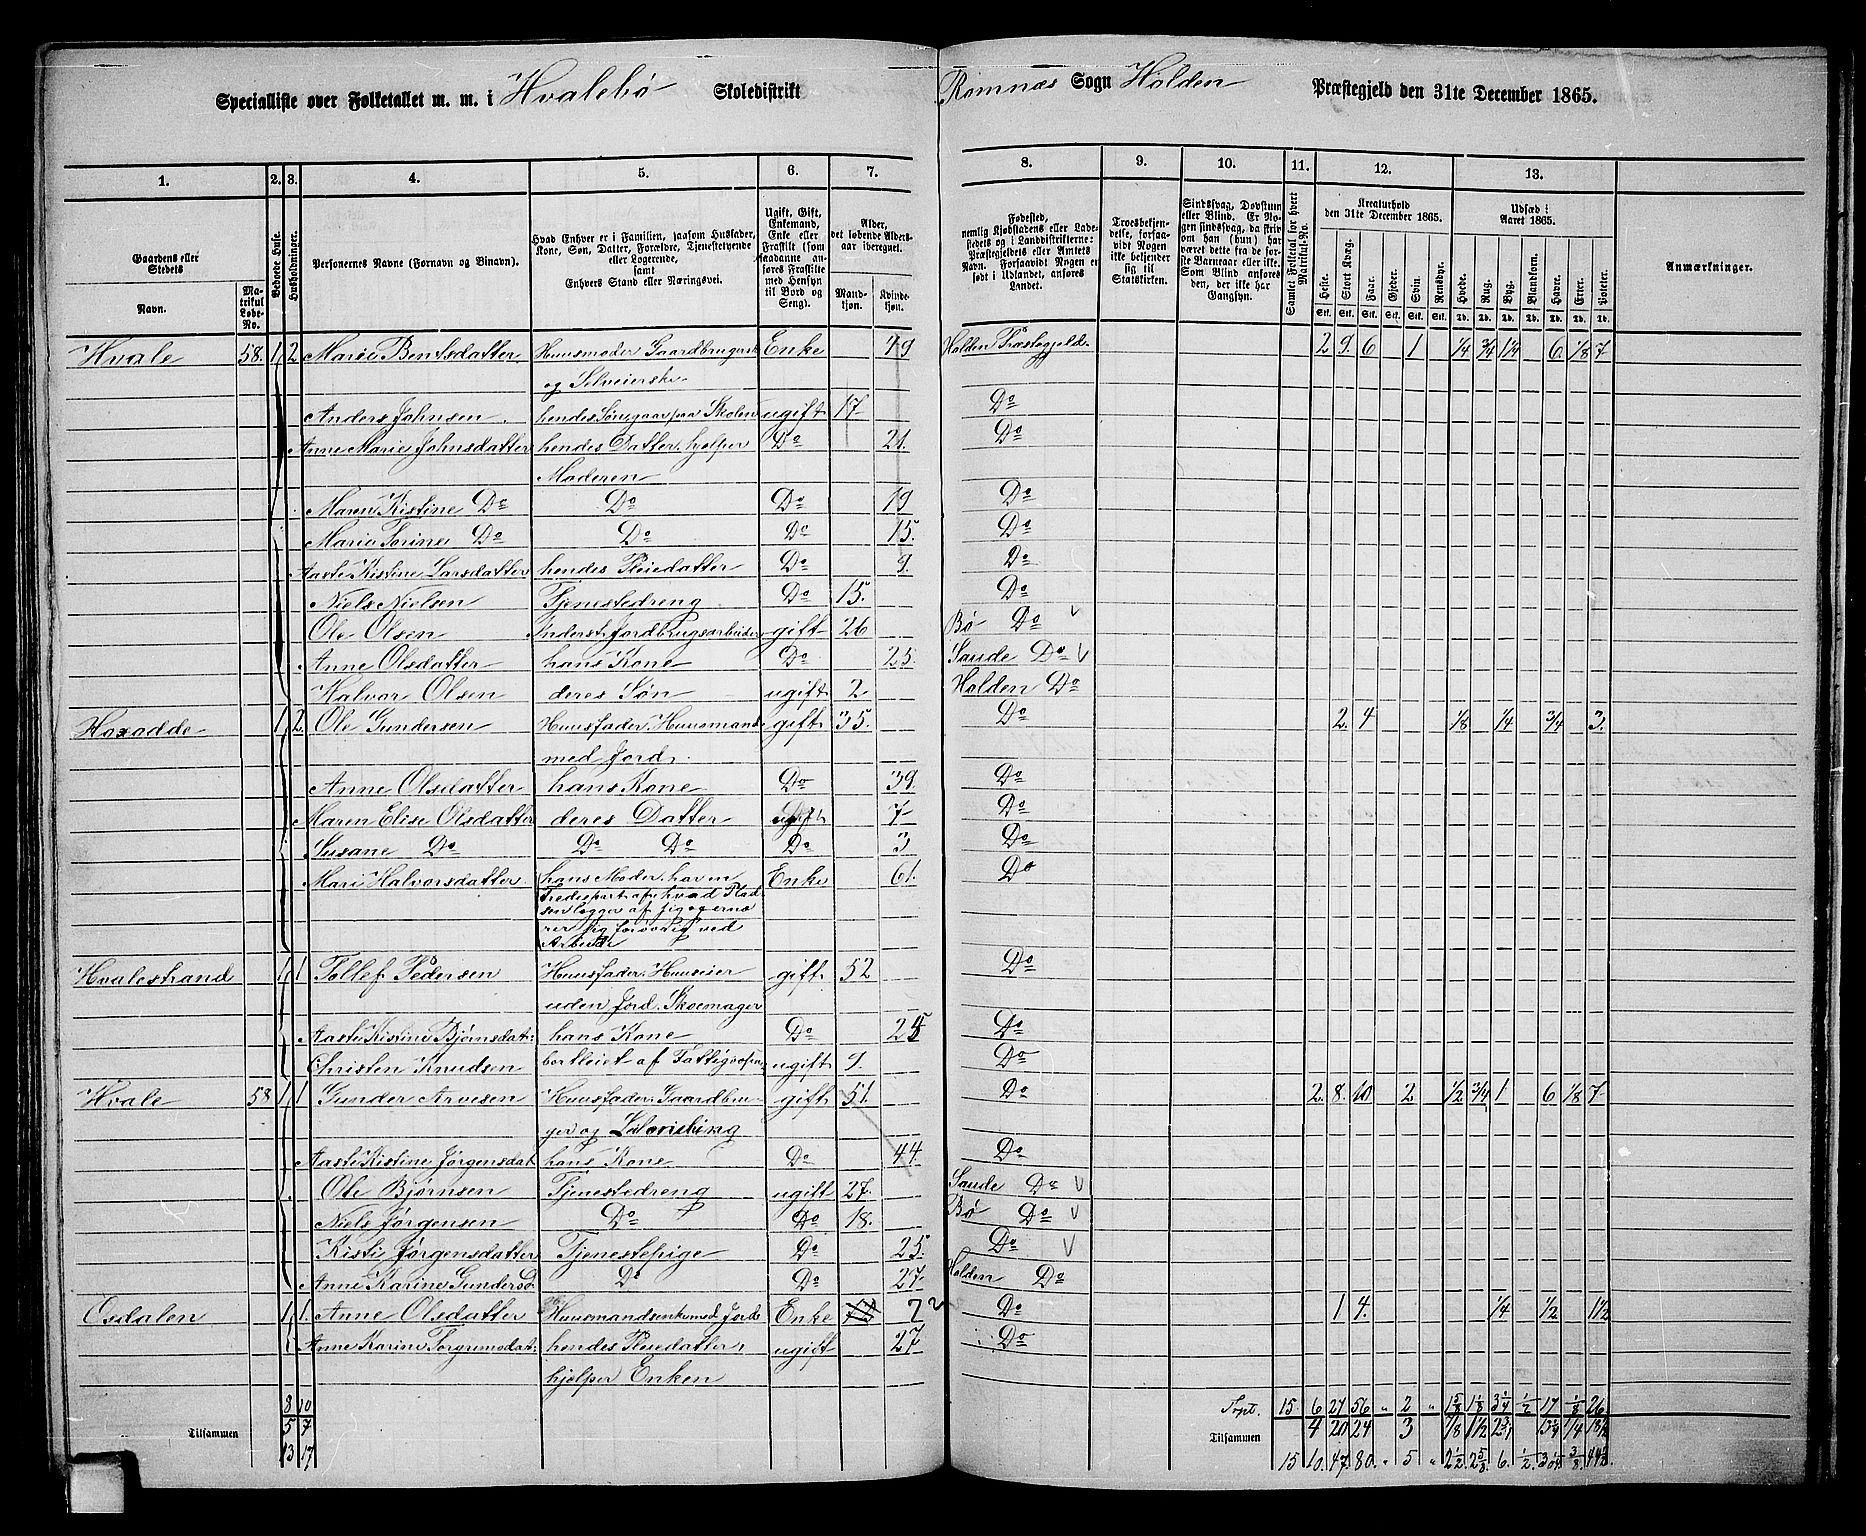 Specialliste over Folketallet m. m. i Hvalebø Skoledistrikt Romnæs Sogn Holden Præstegjeld den 31te December 1865.
1. 2. 3. 4. 5. 6. 7. 8. 9. 10. 11. 12. 13.
Gaardens eller Stedets
Navn.
Matrikul Løbe-No.
Beboede Huse.
Husholdninger.
Personernes Navne (Fornavn og Binavn).
Hvad Enhver er i Familien, saasom Husfader, Kone, Søn, Datter, Forældre, Tjenestetyende eller Logerende, samt Enhvers Stand eller Næringsvei.
Ugift, Gift, Enkemand, Enke eller Fraskilt (som saadanne anføres Fraskilte med Hensyn til Bord og Seng).
Alder, det løbende Aldersaar iberegnet.
Mandkjøn. Kvindekjøn.
Fødested, nemlig Kjøbstadens eller Ladestedets og i Landdistrikterne: Præstegjeldets eller Amtets Navn. Forsaavidt Nogen er født i Udlandet, anføres Landet.
Troesbekjendelse, forsaavidt Nogen ikke bekjender sig til Statskirken.
Sindssvag, Døvstum eller Blind. Er Nogen sindssvag, da skrives om han (hun) har været dette fra de første Barneaar eller ikke. Som Blind anføres den, der ikke har Gangsyn.
Samlet Folketal for hvert Matrikul-No.
Kreaturhold den 31te December 1865.
Heste. Stort Kvæg. Faar. Gjeder. Svin. Rensdyr.
Udsæd i Aaret 1865.
Hvede. Rug. Byg. Blandkorn. Havre. Erter. Poteter.
Anmærkninger.
Hvale 58. 1 2 Maria Bentsdatter Huusmoder Gaardbrugerske Enke 49 Holden Præstegjeld. 2 9. 6 1 1/4 3/4 1 1/4 6. 1/8 7
og Selveierske
Anders Johnsen hendes Søn, gaar paa Skolen ugift 17 Do
Anne Marie Johnsdatter hendes Datter, hjelper Do 21. Do
Moderen
Maren Kistine Do Do Do 19 Do
Marie Torine Do Do Do 15. Do
Aaste Kistine Larsdatter hendes Pleiedatter Do 9. Do
Niels Nielsen Tjenestedreng Do 15. Do
Ole Olsen Inderst, Jordbrugsarbeider gift 26 Bø Do
Anne Olsdatter hans Kone Do 25. Saude Do
Halvor Olsen deres Søn ugift 2. Holden Do
1 2. Ole Gundersen Huusfader, Huusmand gift 35. Do 2. 4 1/8 1/4 3/4 3.
med Jord.
Anne Olsdatter hans Kone Do 39. Do
Maren Elise Olsdatter deres Datter ugift 7 Do
Susane Do Do Do Do 3 Do
Mari Halvorsdatter hans Moder, har en Enke 61. Do
Tredjepart af hvad Plad-
sen legger af sig og ernæ-
rer sig forøvrig ved
Arbeide
Hvalestrand 1 1 Tollef Pedersen Huusfader, Huuseier gift 52 Do
uden Jord. Skoemager
Aaste Kistine Bjørnsdat: hans Kone Do Do
Christen Knudsen bortleiet af ugift 9. Do
Hvale 58 1 1 Gunder Arvesen Huusfader, Gaardbru- gift 51. Do 2. 8. 10 2. 1/2 3/4 1 6 1/8 7
ger og
Aaste Kistine Jørgensdat hans Kone Do 44 Do
Ole Bjørnsen Tjenestedreng ugift 27. Saude Do
Niels Jørgensen Do Do 18. Bø Do
Kisti Jørgensdatter Tjenestepige Do 25. Do
Anne Karine Gundersd. Do Do 27 Holden Do
Osdalen 1 1. Anne Olsdatter Huusmandsenke med Jord Enke 72 Do 1 4. 1/4 1/2 1 1/2
Anne Karine Torgrimsdat: hendes Pleiedatter, ugift 27 Do
hjelper Enken
8 10 15 6 27 56 " 2 " 1 5/8 1 1/8 3 1/4 1/2 17 1/8 26
Tilsammen 5 7 Tilsammen 4 20 24 3 7/8 1 1/2 2 3/4 13 1/4 1/4 18 1/2
13 17 15 10. 47. 80. " 5 " 2 1/2 2 5/8 6. 1/2 3/8 44 1/2